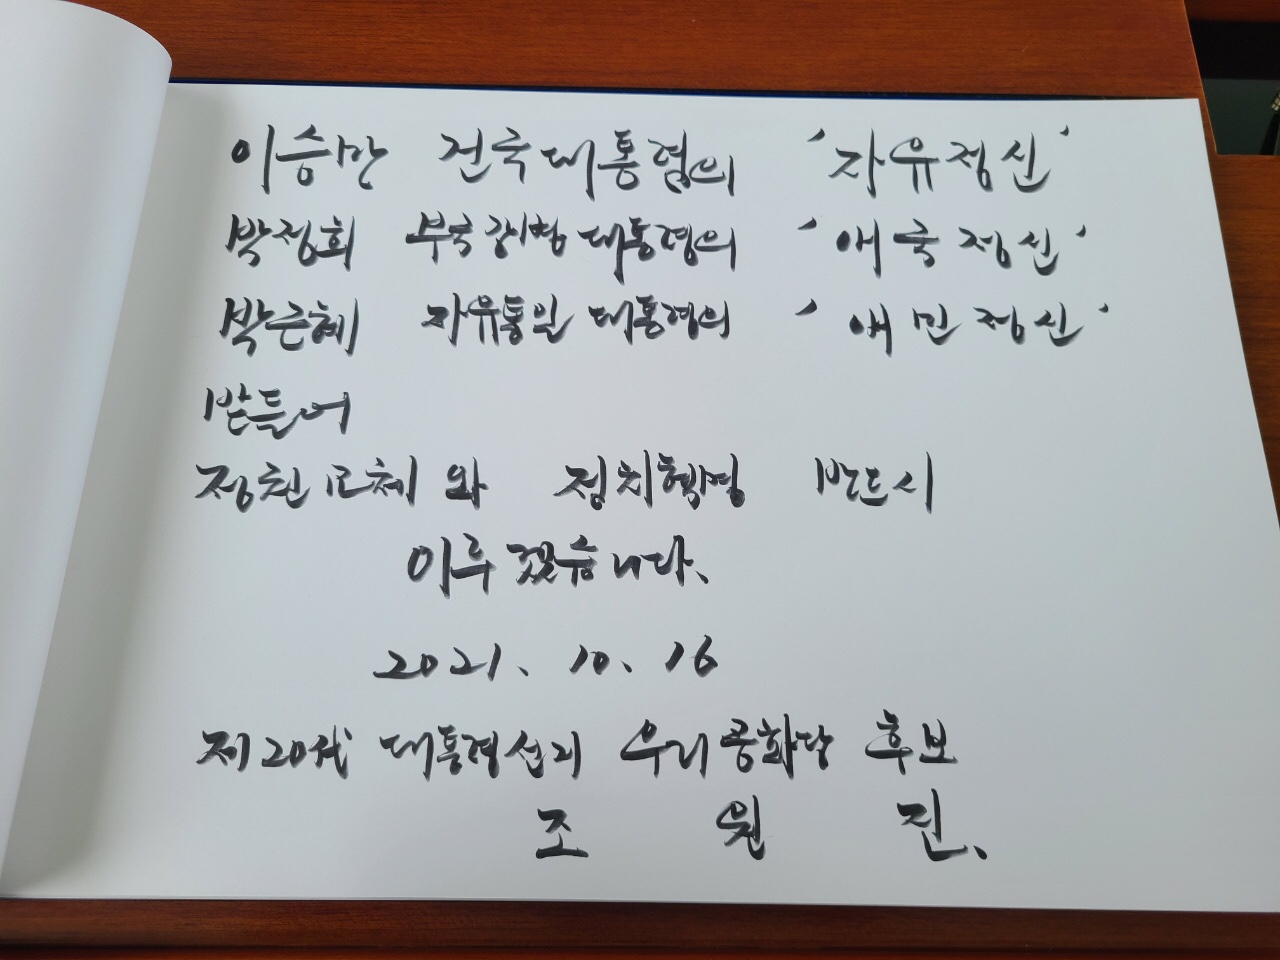 이승만 건국대통령의 '자유정신'
박정희 부국강병대통령의 '애국정신'
박근혜 자유통일 대통령의 '애민정신'
받들어
정권교체와 정치혁명 반드시
이루겠습니다.
2021. 10. 16
제20代 대통령선거 우리공화당 후보
조 원 진.